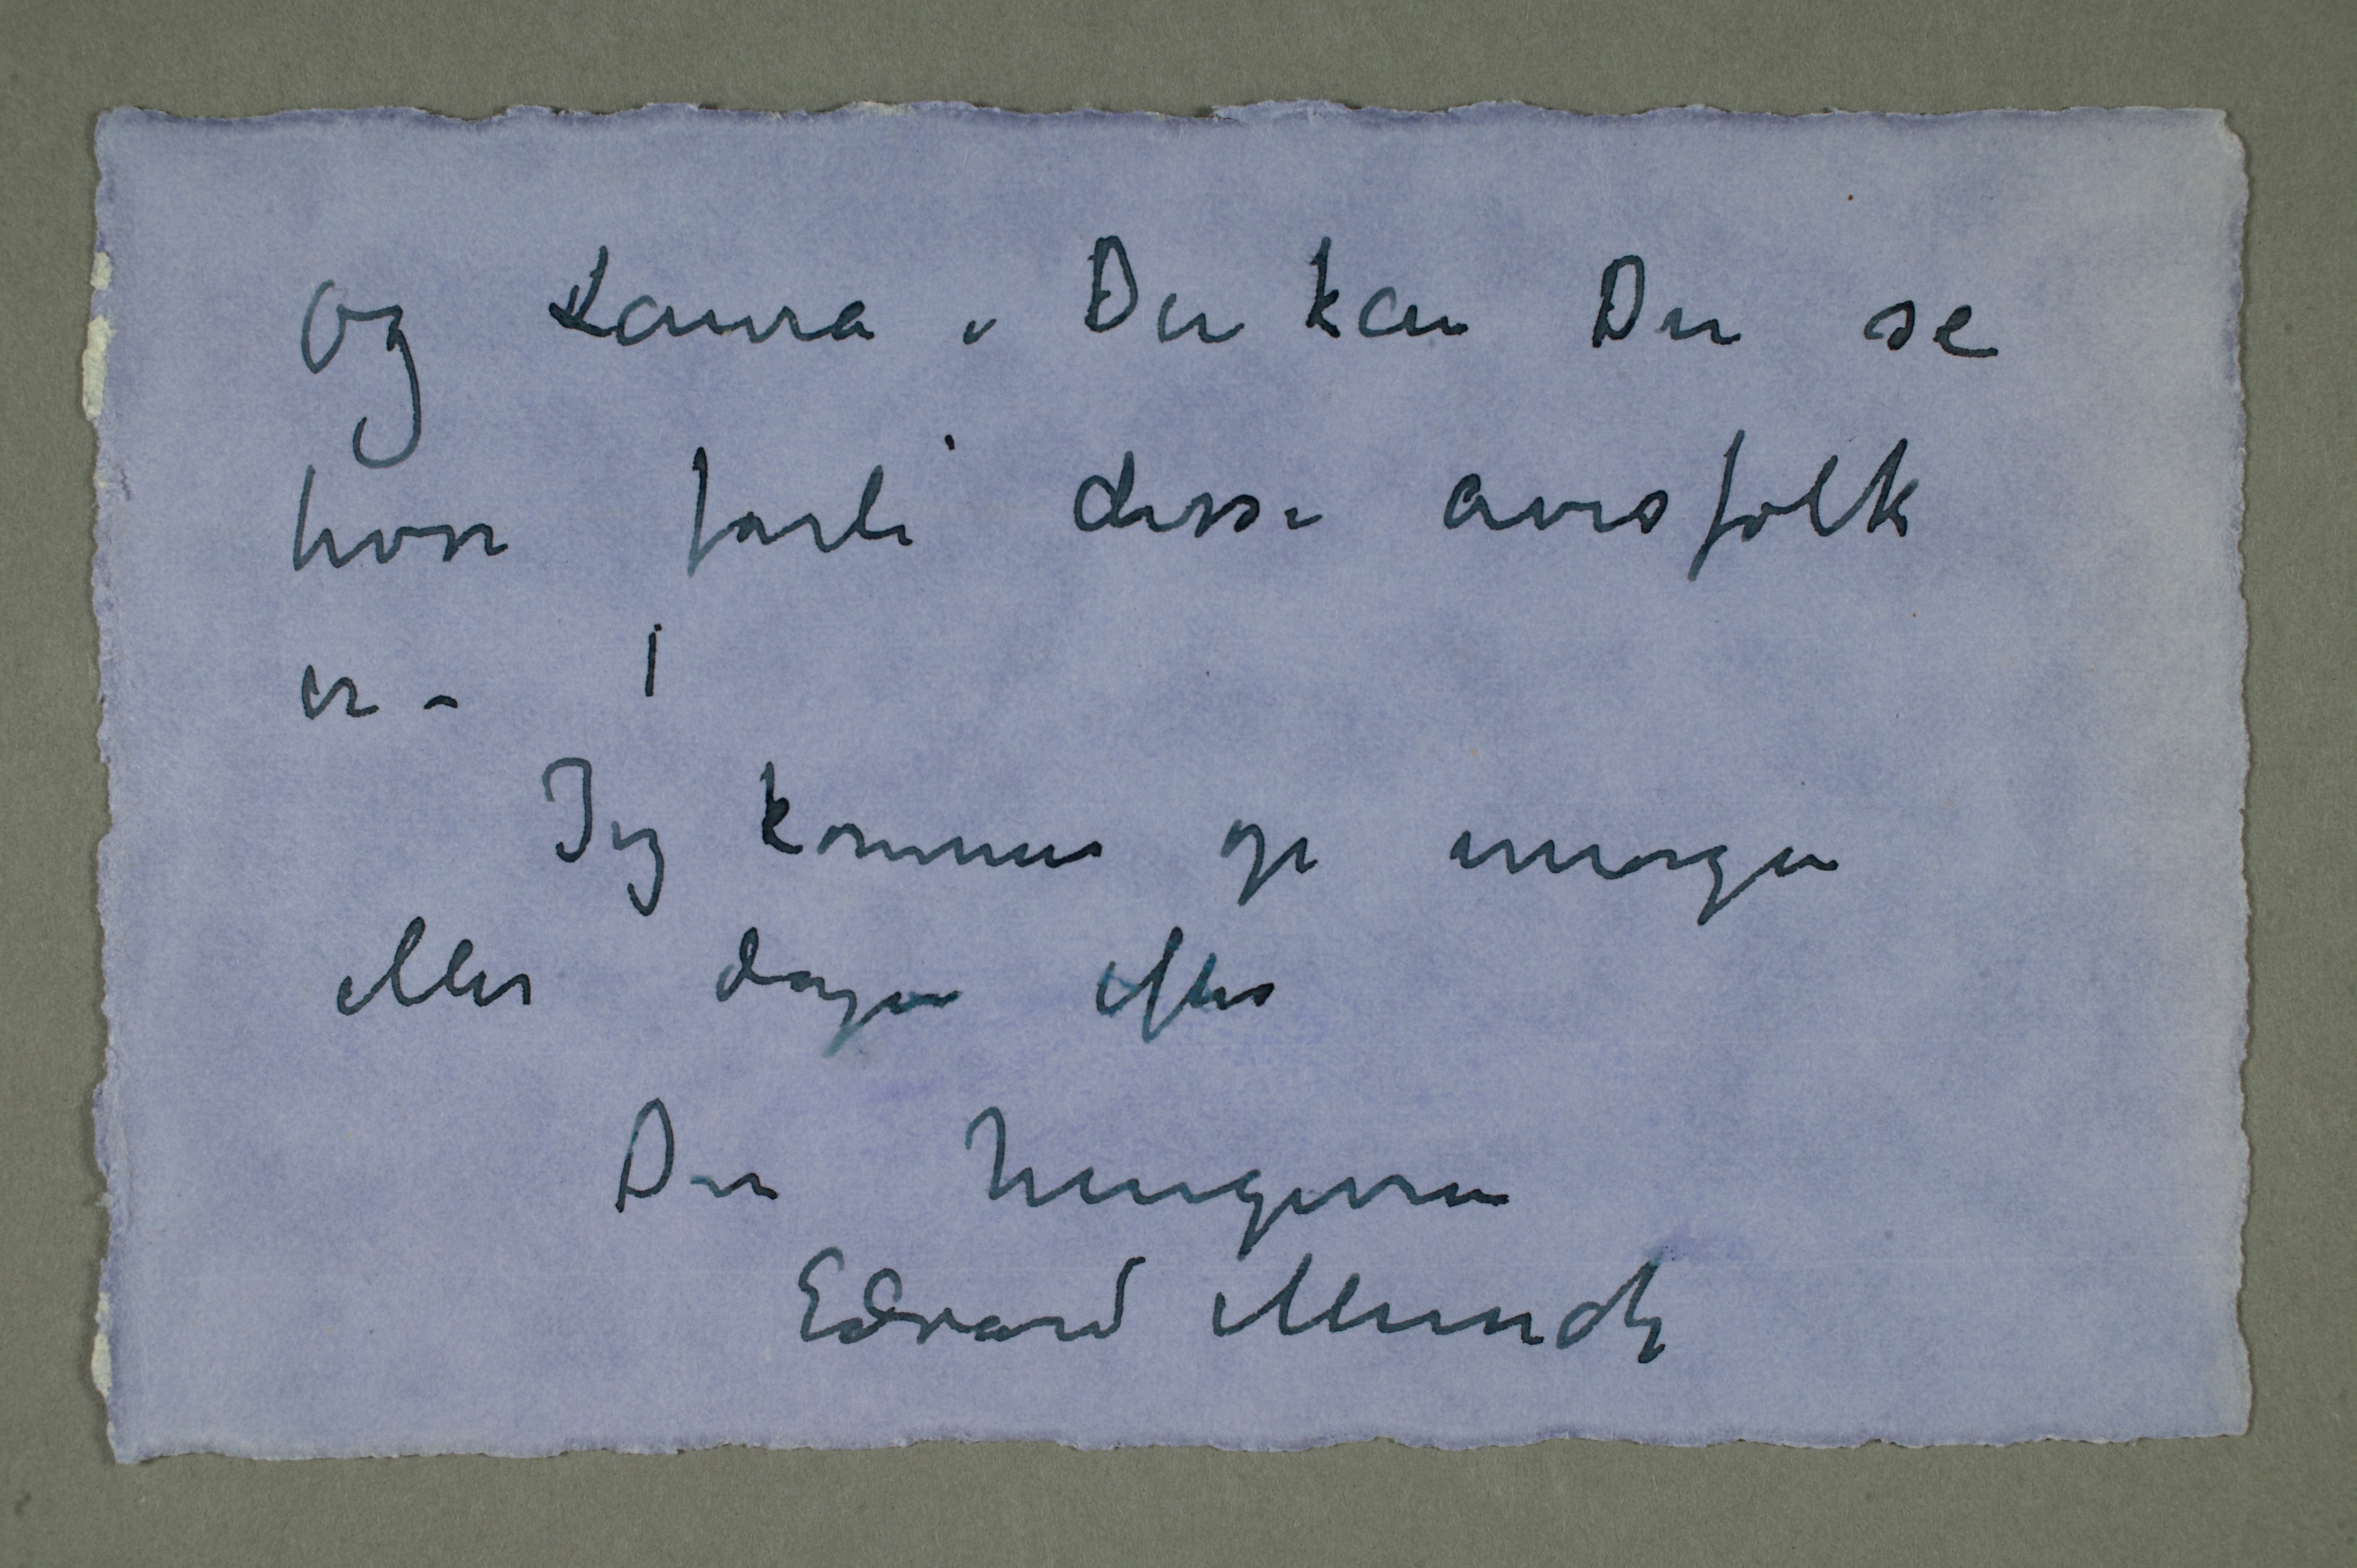 og Laura. Der kan Du se
hvor farli disse avisfolk
er – !
Jeg kommer op imorgen
eller dagen efter
Din hengivne
Edvard Munch